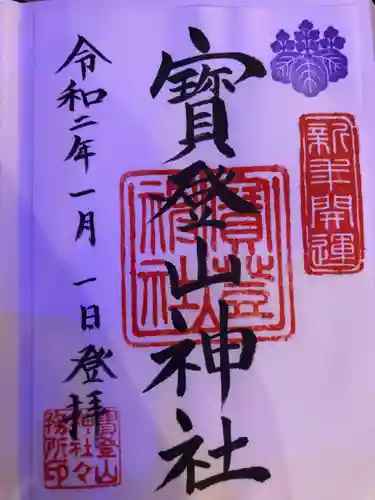 新年開運
寳登山神社
寳登山神社
令和二年一月一日登拝
寳登山神社々務所印